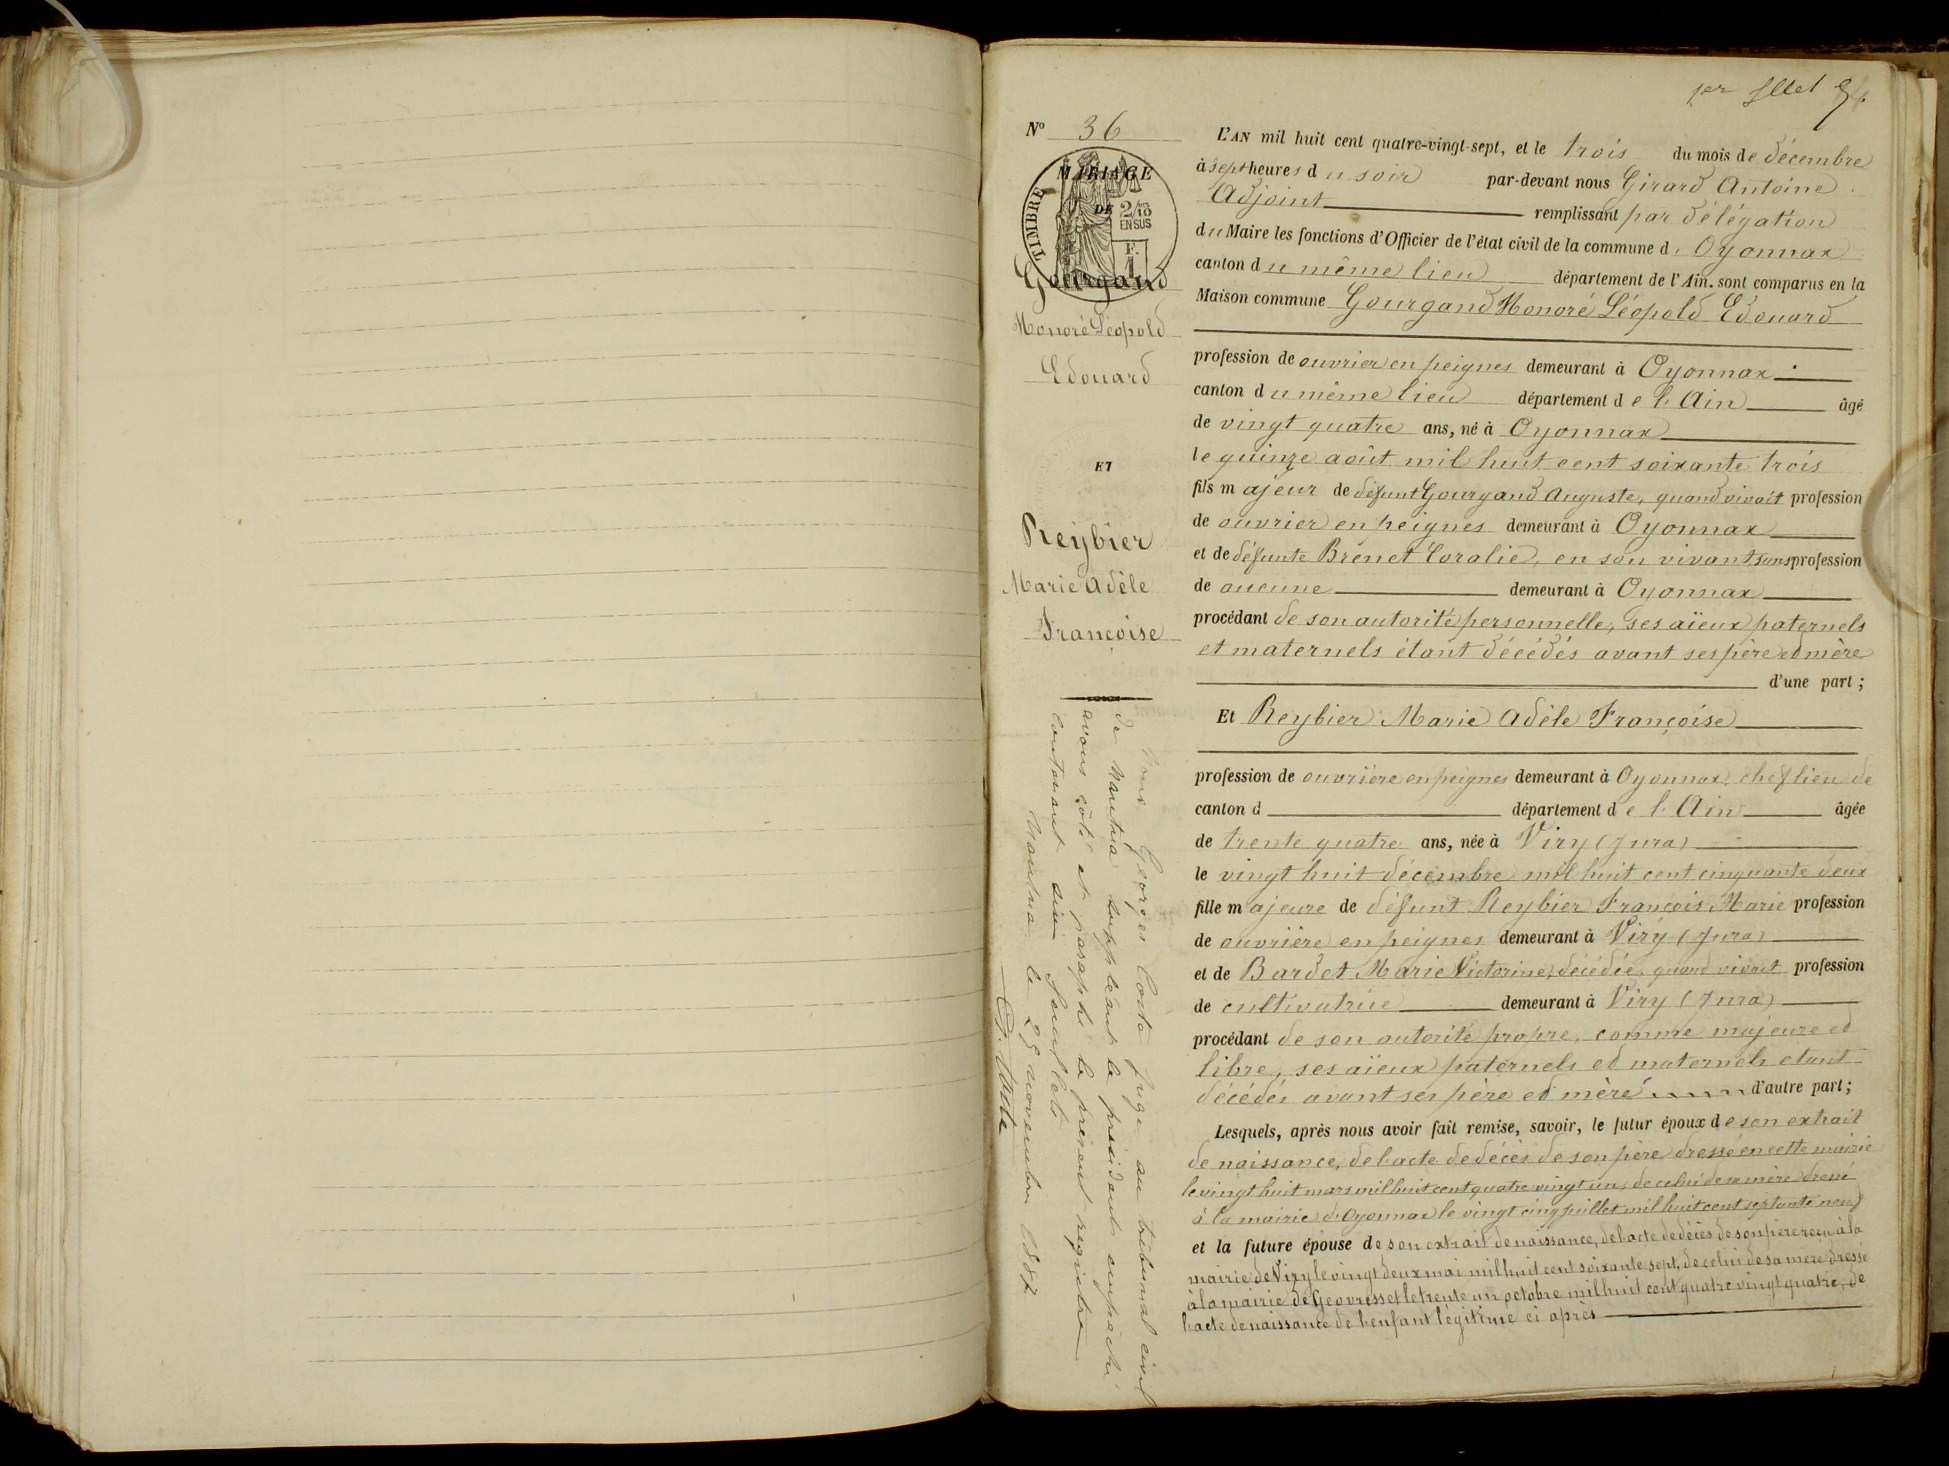 1er fllet
Nº 36
MARIAGE
TIMBRE
DE
2/10
EN SUS
F.
1
Gourgand
Honoré Léopold
Edouard
ET
Reybier
Marie Adèle
Françoise
L'AN mil huit cent quatre-vingt-sept, et le trois du mois de décembre
à sept heures du soir par-devant nous Girard Antoine
Adjoint remplissant par délégation
du Maire les fonctions d'Officier de l'état civil de la commune d' Oyonnax
canton du même lieu département de l'Ain. sont comparus en la
Maison commune Gourgand Honoré Léopold Edouard
profession de ouvrier en peignes demeurant à Oyonnax
canton du même lieu département de l'Ain âgé
de vingt quatre ans, né à Oyonnax
le quinze août mil huit cent soixante trois
fils majeur de défunt Gourgand Auguste, quand vivait profession
de ouvrier en peignes demeurant à Oyonnax
et de défunte Brenet Coralie, en son vivant sans profession
de aucune demeurant à Oyonnax
procédant de son autorité personnelle, ses aïeux paternels
et maternels étant décédés avant ses père et mère
d'une part ;
Et Reybier Marie Adèle Françoise
profession de ouvrière en peignes demeurant à Oyonnax, chef lieu de
canton d département de l'Ain âgée
de trente quatre ans, née à Viry (Jura)
le vingt huit décembre mil huit cent cinquante deux
fille majeure de défunt Reybier François Marie profession
de ouvrière en peignes demeurant à Viry (Jura)
et de Bardet Marie Victorine, décédée, quand vivait profession
de cultivatrice demeurant à Viry (Jura)
procédant de son autorité propre, comme majeure et
libre, ses aïeux paternels et maternels étant
décédés avant ses père et mère d'autre part ;
Lesquels, après nous avoir fait remise, savoir, le futur époux de son extrait
de naissance, de l'acte de décès de son père dressé en cette mairie
le vingt huit mars mil huit cent quatre vingt un, de celui de sa mère dressé
à la mairie d'Oyonnax le vingt cinq juillet mil huit cent septante neuf
et la future épouse de son extrait de naissance, de l'acte de décès de son père reçu à la
mairie de Viry le vingt deux mai mil huit cent soixante sept, de celui de sa mère dressé
à la mairie de Geovresset le trente un octobre mil huit cent quatre vingt quatre, de
l'acte de naissance de l'enfant légitimé ci après
Nous Georges Coste juge au tribunal civil
de Nantua suppléant le président empêché
avons coté et paraphé le présent registre
contenant feuillets
Nantua le 25 novembre 1887
G. Coste